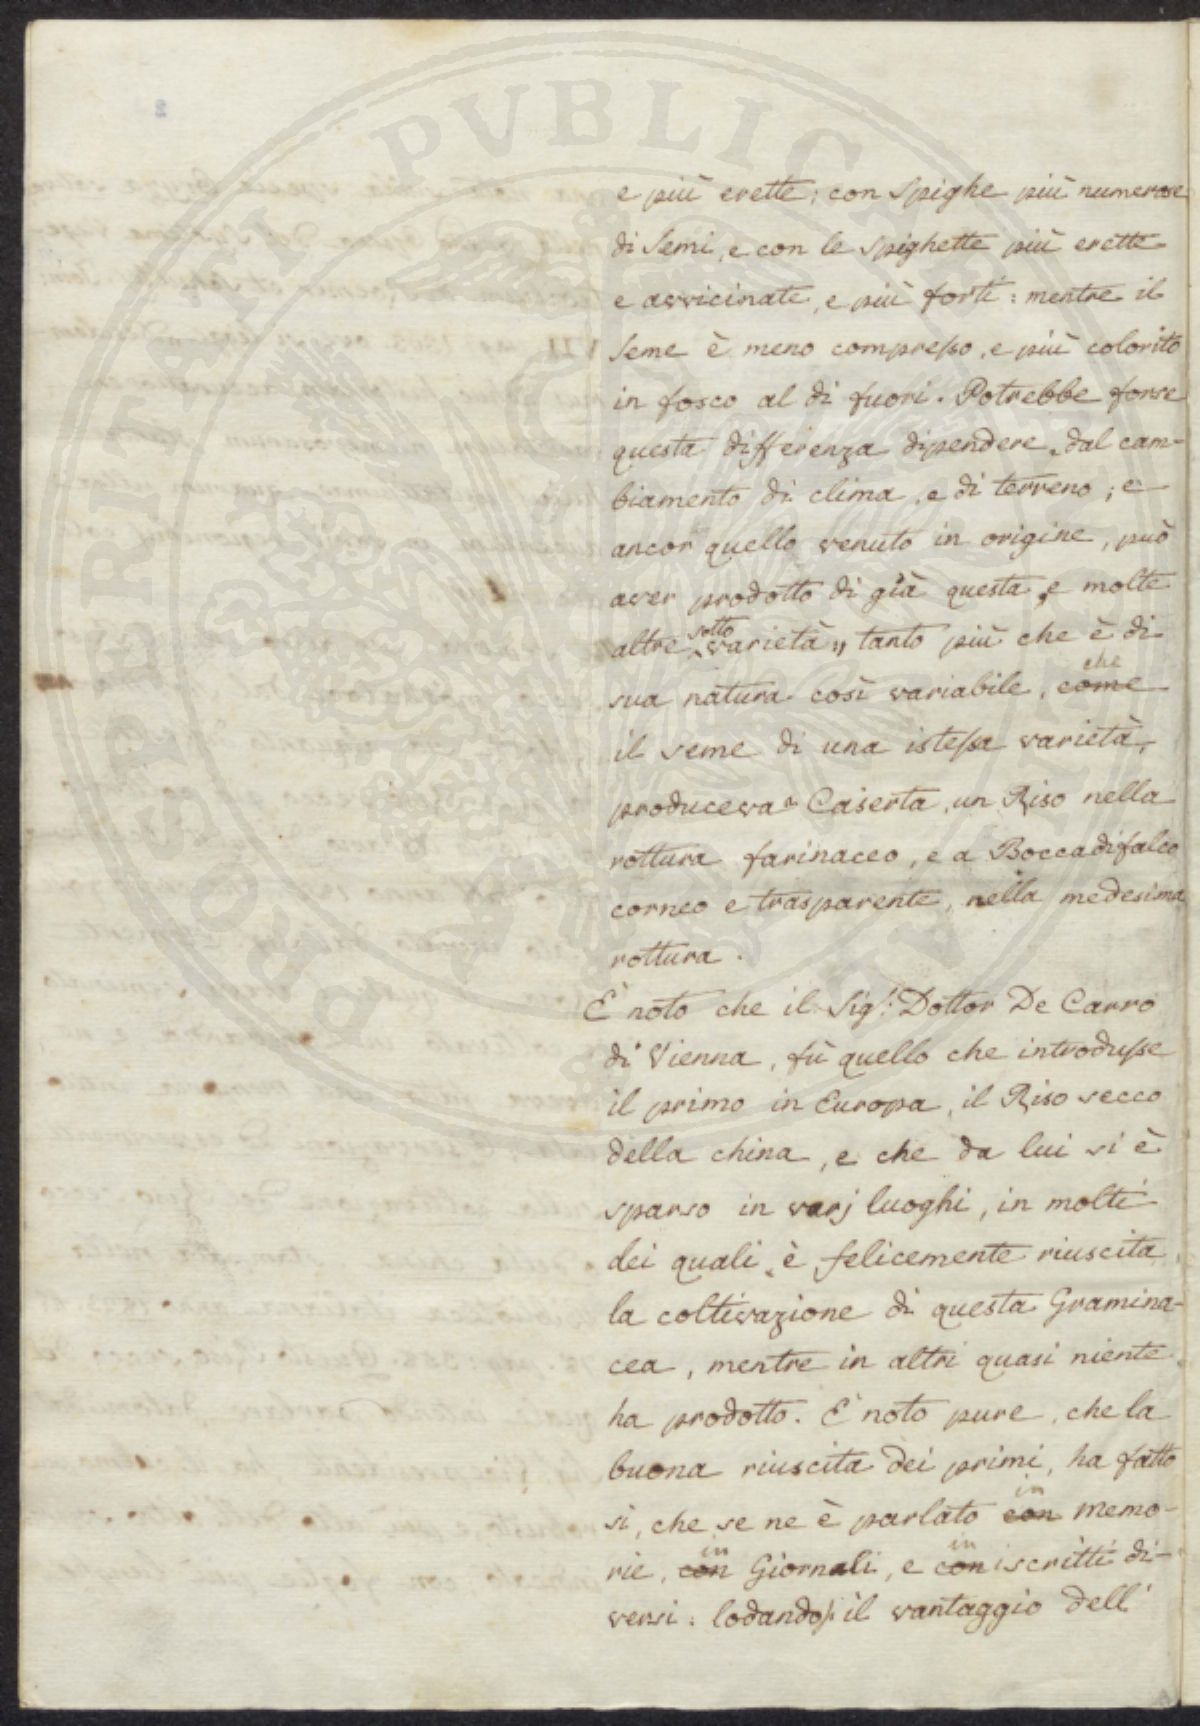 e più erette; con spighe più numerose
di Semi, e con le spighette più erette
e avvicinate, e più forti: mentre il
Seme è meno compresso, e più colorito
in fosco al di fuori. Potrebbe forse
questa differenza dipendere dal cam-
biamento di clima, e di terreno; e
ancor quello venuto in origine, può
aver prodotto di già questa, e molte
altre sotto varietà, tanto più che è di
sua natura così variabile, come che
il seme di una istessa varietà,
produceva a Caserta, un Riso nella
rottura farinaceo, e a Boccadifalco
corneo e trasparente, nella medesima
rottura.
È noto che il Sig.r Dottor De Carro
di Vienna, fù quello che introdusse
il primo in Europa, il Riso secco
della china, e che da lui si è
sparso in varj luoghi, in molti
dei quali è felicemente riuscita
la coltivazione di questa Gramina-
cea, mentre in altri quasi niente
ha prodotto. È noto pure, che la
buona riuscita dei primi, ha fatto
sì, che se ne è parlato con in memo-
rie, con in Giornali, e con in iscritti di-
versi: lodandosi il vantaggio dell'